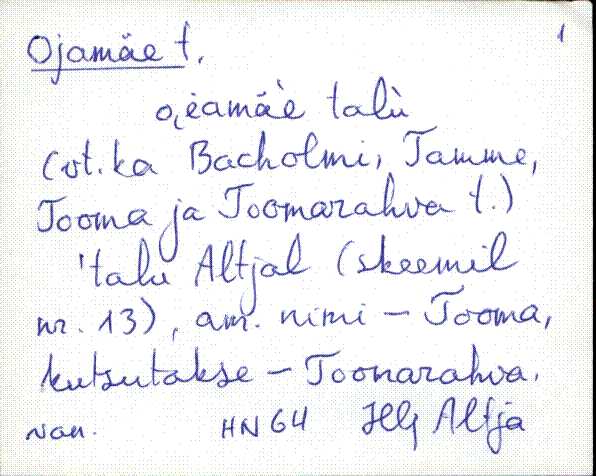 1
Ojamäe t.
o̭i̭amä̀e talù
(vt. ka Bacholmi, Tamme,
Tooma ja Toomarahva t.)
'talu Altjal (skeemil
nr. 13), am. nimi – Tooma,
kutsutakse – Toomarahva.
van. HN 64 Hlj Altja